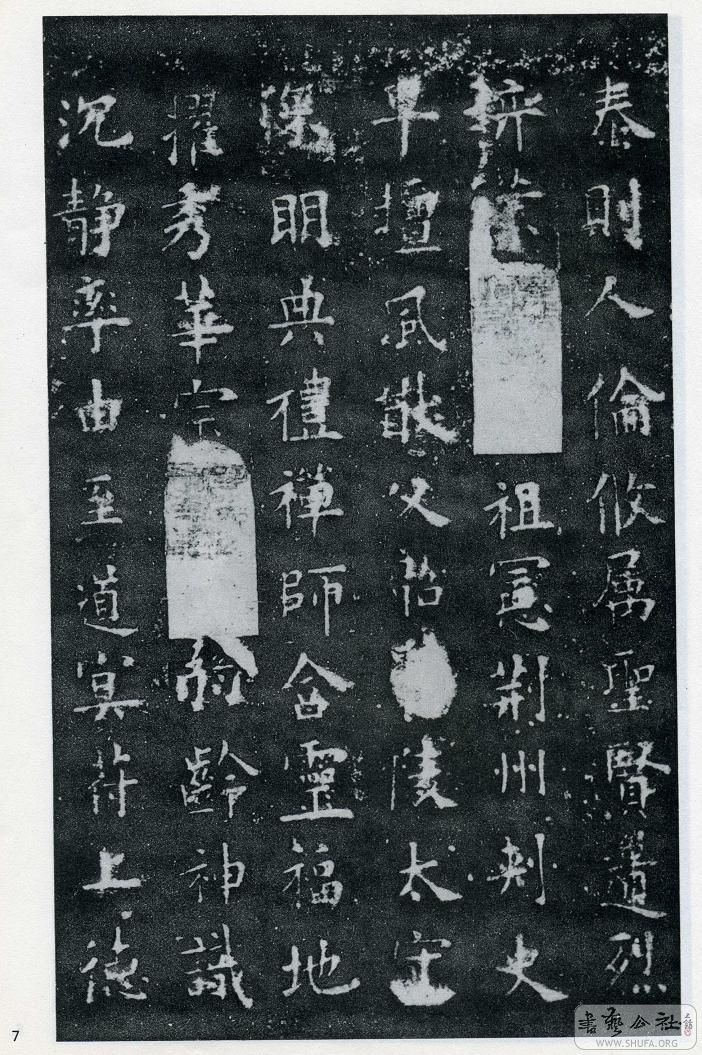 泰則人倫攸属聖賢遺烈
葉祖憲荊州刺史
早擅風猷父紹陵太守
深明典禮禪師含靈福地
擢秀華宗齡神識
沉静率由至道冥符上德
7
書藝公社
WWW.SHUFA.ORG